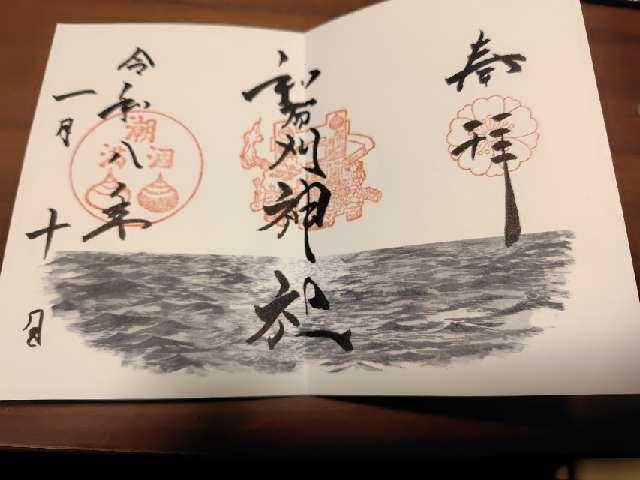 奉拝
和布刈神社
令和八年
一月十日
潮
満 涸